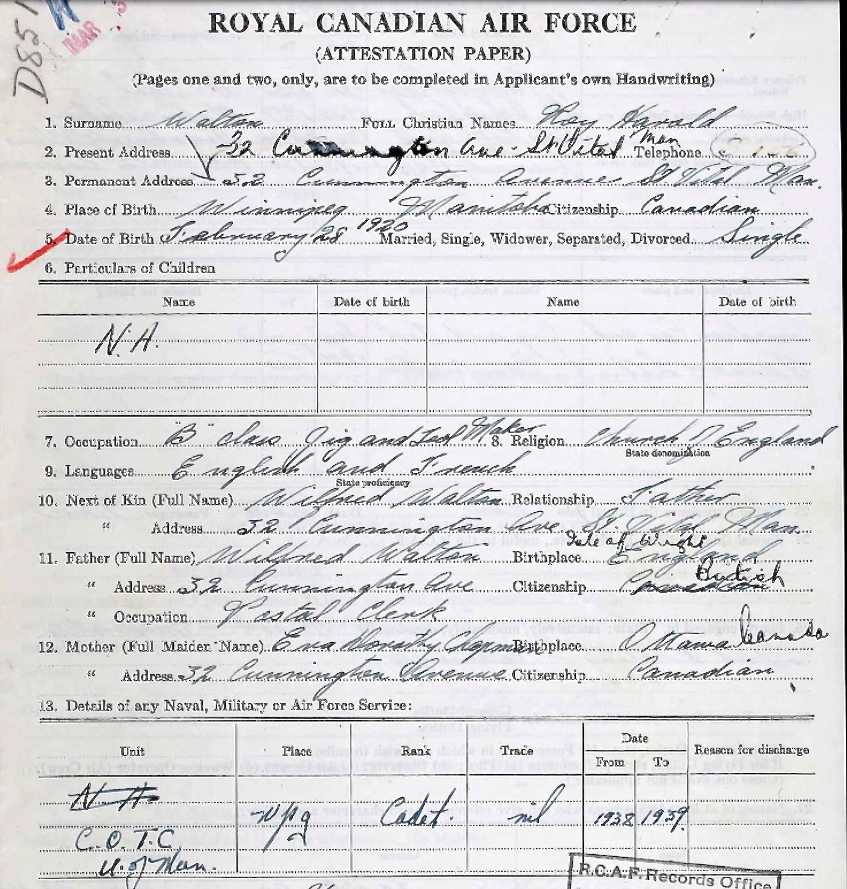 D85
MAR
ROYAL CANADIAN AIR FORCE
(ATTESTATION PAPER)
(Pages one and two, only, are to be completed in Applicant's own Handwriting)
1. Surname Walton FULL Christian Names Harold
2. Present Address 32 Cunnington Ave - St Vital Man Telephone
3. Permanent Address 32 Cunnington Avenue St Vital Man.
4. Place of Birth Winnipeg Manitoba Citizenship Canadian
5. Date of Birth February 28 1920 Married, Single, Widower, Separated, Divorced Single
6. Particulars of Children
Name Date of birth Name Date of birth
N.A.
7. Occupation "B" class Jig and Tool Maker 8. Religion Church of England
State denomination
9. Languages English and French
State proficiency
10. Next of Kin (Full Name) Wilfred Walton Relationship Father
" Address 32 Cunnington Ave St. Vital Man.
Isle of Wight
11. Father (Full Name) Wilfred Walton Birthplace England
" Address 32 Cunnington Ave Citizenship British
" Occupation Postal Clerk
12. Mother (Full Maiden Name) Dorothy Birthplace Ottawa Canada
" Address 32 Cunnington Avenue Citizenship Canadian
13. Details of any Naval, Military or Air Force Service:
Unit Place Rank Trade Date From To Reason for discharge
N.A.
C.O.T.C. Wpg Cadet. nil 1938 1939
U. of Man.
R.C.A.F. Records Office